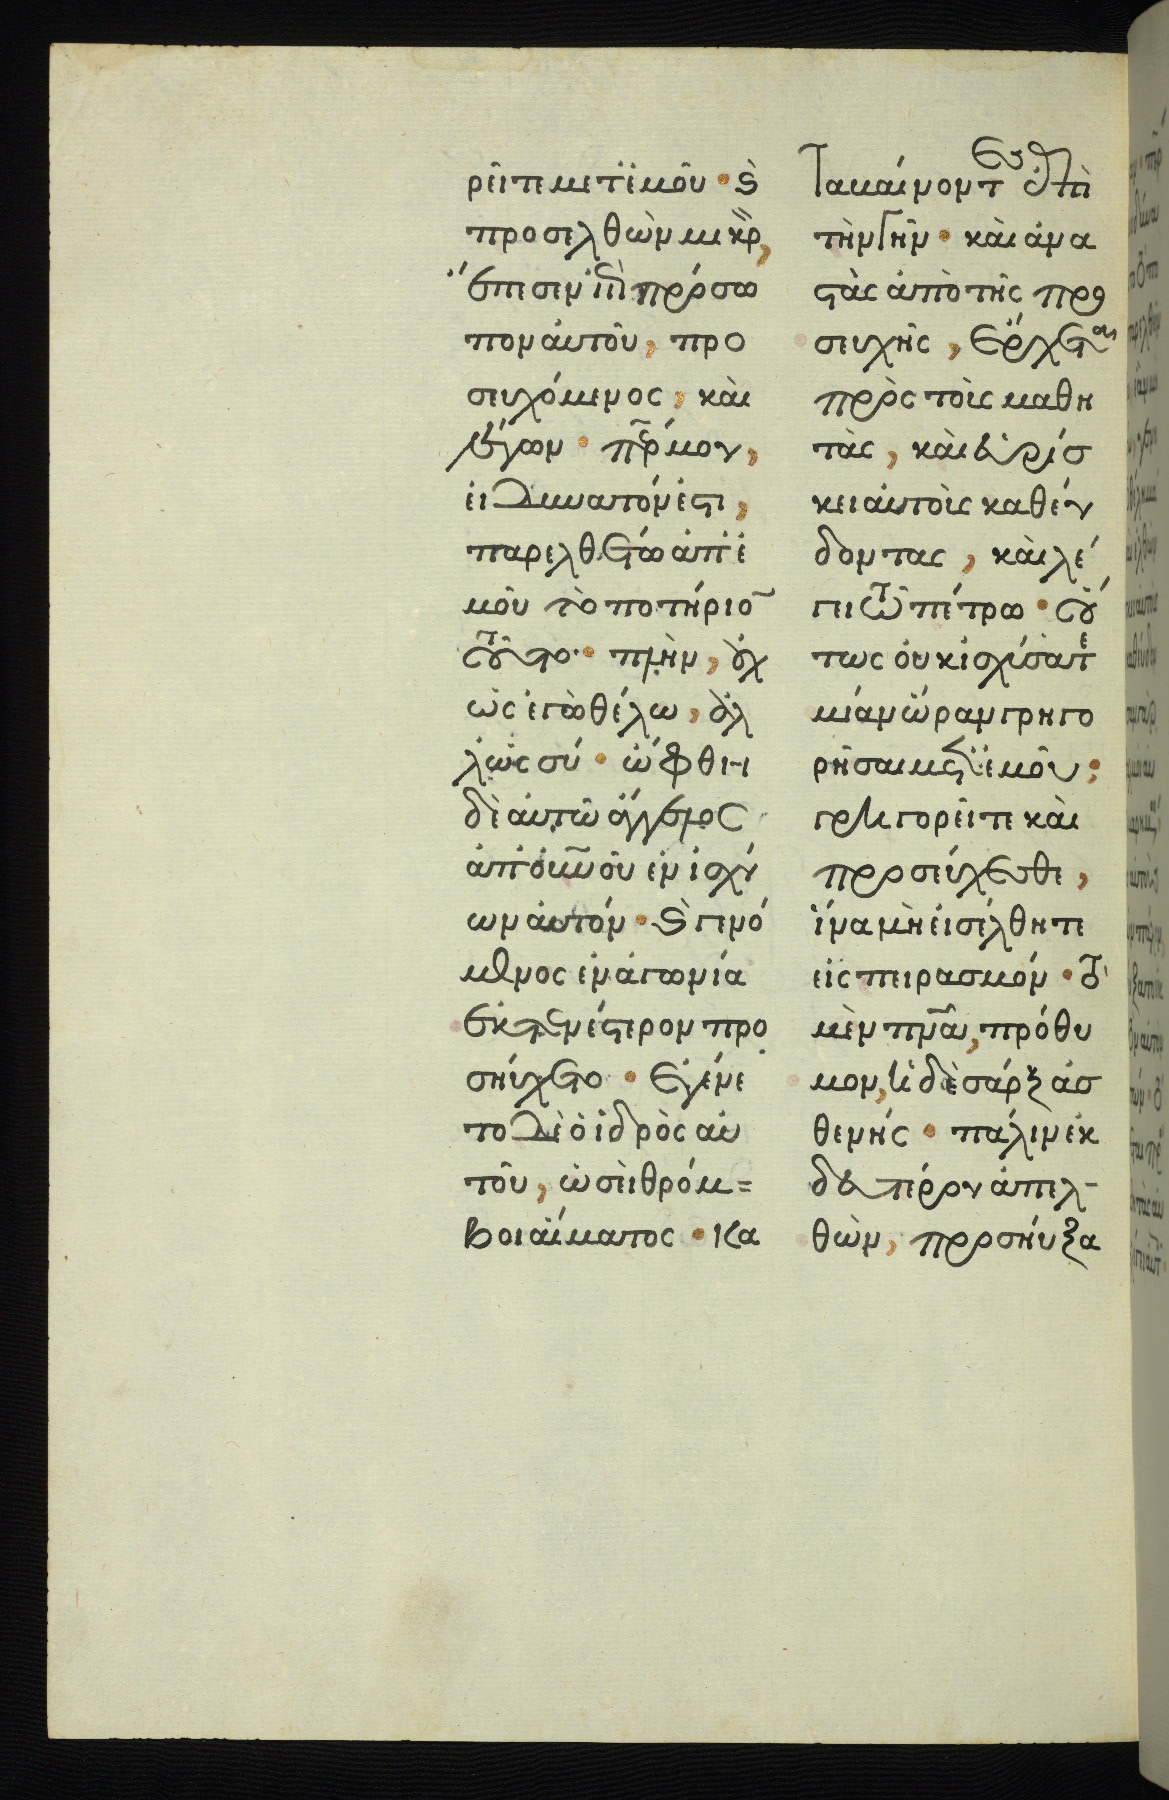 ρεῖτε μετ' ἐμοῦ · καὶ
προσελθὼν μικρ,
ἔπεσεν ἐπὶ πρόσω
πον αὐτοῦ, προ
σευχόμενος, καὶ
λέγων · περ μου,
εἰ δυνατόν ἐστι,
παρελθέτω ἀπ' ἐ
μοῦ τὸ ποτήριο
τοῦτο · πλὴν, οὐχ
ὡς ἐγὼ θέλω, ἀλ
λ' ὡς σύ · ὤφθη
δὲ αὐτῶ ἄγγελος
ἀπ' οὐνοῦ ἐνισχύ
ων αὐτόν · καὶ γενό
μενος ἐν ἀγωνία
ἐκτενέστερον προ
σηύχετο · ἐγένε
το δὲ ὁ ἱδρὸς αὐ
τοῦ, ὡσεὶ θρόμ=
βοι αἵματος · κα
ταβαίνοντες ἐπὶ
τὴν γῆν · καὶ ἀνα
στὰς ἀπὸ τῆς προ
σευχῆς, ἔρχεται
πρὸς τοὺς μαθη
τὰς, καὶ εὑρίσ
κει αὐτοὺς καθεύ
δοντας, καὶ λέ
γει τῶ πέτρω · οὕ
τως οὐκ ἰσχύσατε
μίαν ὥραν γρηγο
ρῆσαι μετ' ἐμοῦ;
γρηγορεῖτε καὶ
προσεύχεσθε,
ἵνα μὴ εἰσέλθητε
εἰς πειρασμόν · τὸ
μὲν πνα, πρόθυ
μον, ἡ δὲ σάρξ ἀσ
θενής · πάλιν ἐκ
δευτέρου ἀπελ-
θὼν, προσηύξα